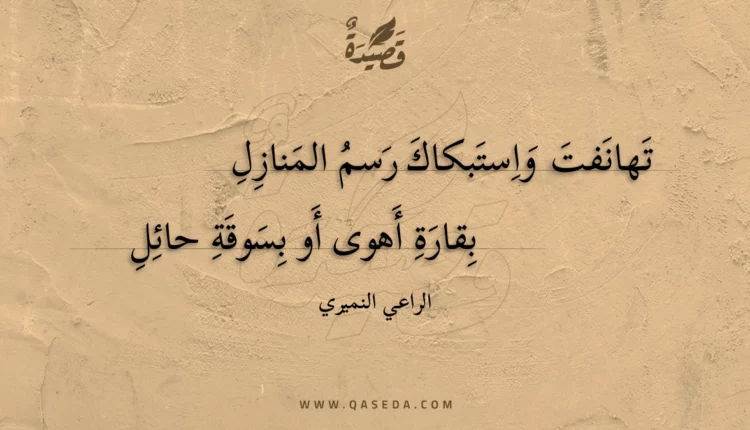 قَصِيْدَةٌ
تَهانَفتَ وَاِستَبكاكَ رَسمُ المَنازِلِ
بِقارَةِ أَهوى أَو بِسَوقَةِ حائِلِ
الراعي النميري
WWW.QASEDA.COM